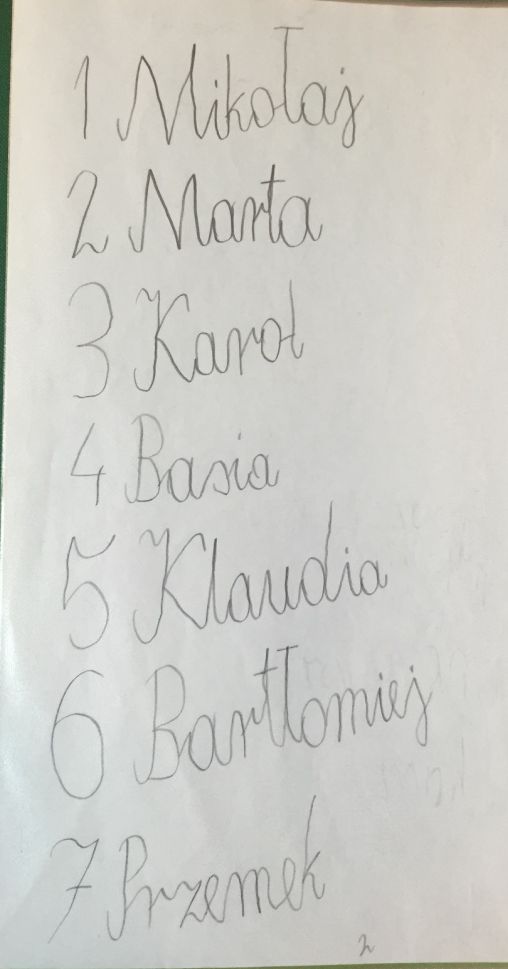 1 Mikołaj
2 Marta
3 Karol
4 Basia
5 Klaudia
6 Bartłomiej
7 Przemek
2